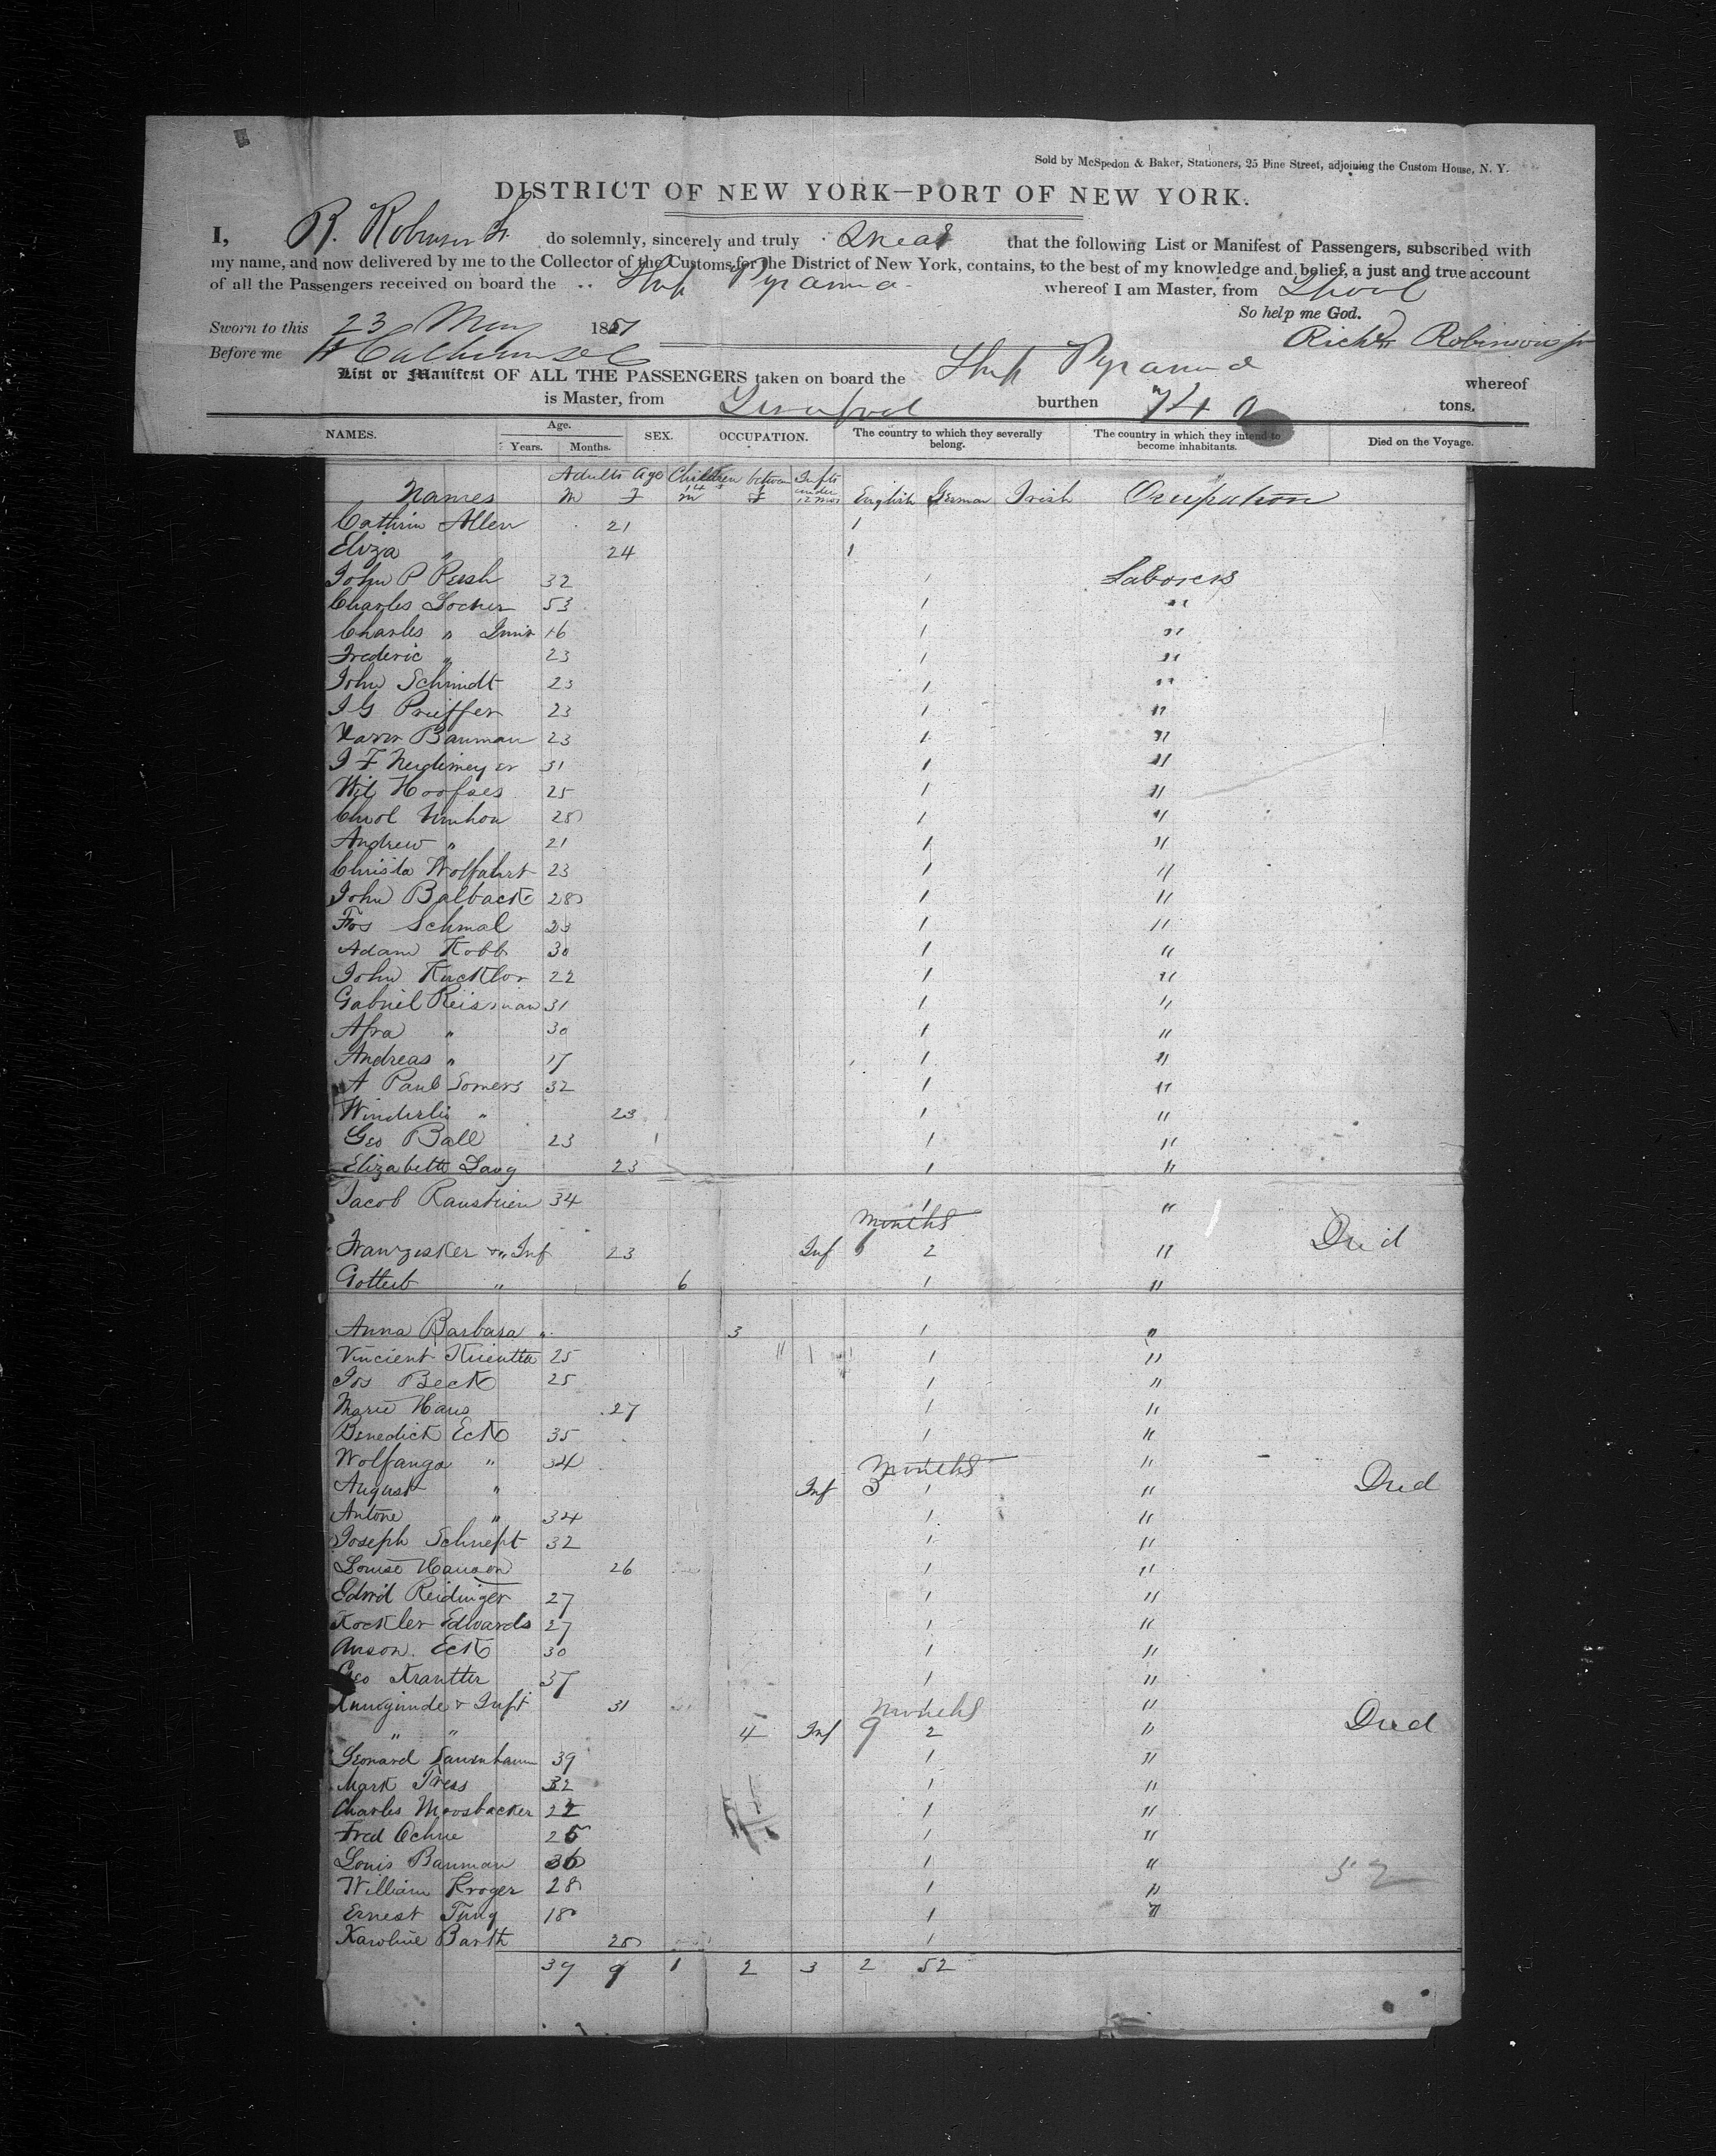 Sold by McSpedon & Baker, Stationers, 25 Pine Street, adjoining the Custom House, N. Y.
DISTRICT OF NEW YORK—PORT OF NEW YORK.
I, R. Robinson Jr. do solemnly, sincerely and truly swear that the following List or Manifest of Passengers, subscribed with
my name, and now delivered by me to the Collector of the Customs for the District of New York, contains, to the best of my knowledge and belief, a just and true account
of all the Passengers received on board the Ship Pyramid whereof I am Master, from Lpool
So help me God.
Sworn to this 23 May 1851 Richd Robinson Jr
Before me
List or Manifest OF ALL THE PASSENGERS taken on board the Ship Pyramid whereof
is Master, from Liverpool burthen 740 tons.
NAMES. Age. Years. Months. SEX. OCCUPATION. The country to which they severally belong. The country in which they intend to become inhabitants. Died on the Voyage.
Names Adults Age M F Children between 14 & 1 M F Infts under 12 mos English German Irish Ocupation
Cathrin Allen 21 1
Eliza " 24 1
John P Rush 32 1 Laborers
Charles Locher 53 1 "
Charles " Junir 16 1 "
Frederic " 23 1 "
John Schmidt 23 1 "
J G Prieffer 23 1 "
Bauman 23 1 "
J F 31 1 "
Wil Hoofses 25 1 "
28 1 "
Andrew " 21 1 "
Christa Wolfahrt 23 1 "
John Balback 28 1 "
Fos Schmal 23 1 "
Adam Kobb 30 1 "
John Kucklor 22 1 "
Gabriel Reisman 31 1 "
Afra " 30 1 "
Andreas " 17 1 "
A Paul Somers 32 1 "
Winderlis " 23 1 "
Geo Ball 23 1 "
Elizabeth Lang 23 1 "
Jacob 34 1 "
Months
Franzisker & " Inf 23 Inf 6 2 " Died
Gotteib " 6 1 "
Anna Barbara " 3 1 "
Vincient 25 1 "
Jos Beck 25 1 "
Marie Haus 27 1 "
Benedick Eck 35 1 "
Wolfanga " 34 1 "
Months
August " Inf 3 1 " Died
Antone " 34 1 "
Joseph Schneft 32 1 "
Louise Hauson 26 1 "
Edwd Reidinger 27 1 "
Kockler Edwards 27 1 "
Anson Eck 30 1 "
Geo Krautter 37 1 "
Kunogunde & Inft 31 Months "
" " 4 Inf 9 2 " Died
Leonard 39 1 "
Mark Tress 32 1 "
Charles Moosbacker 22 1 "
Fred Ochne 25 1 "
Louis Bauman 36 1 "
52
William Kroger 28 1 "
Ernest Tung 18 1 "
Karoline Barth 28 1
39 9 1 2 3 2 52